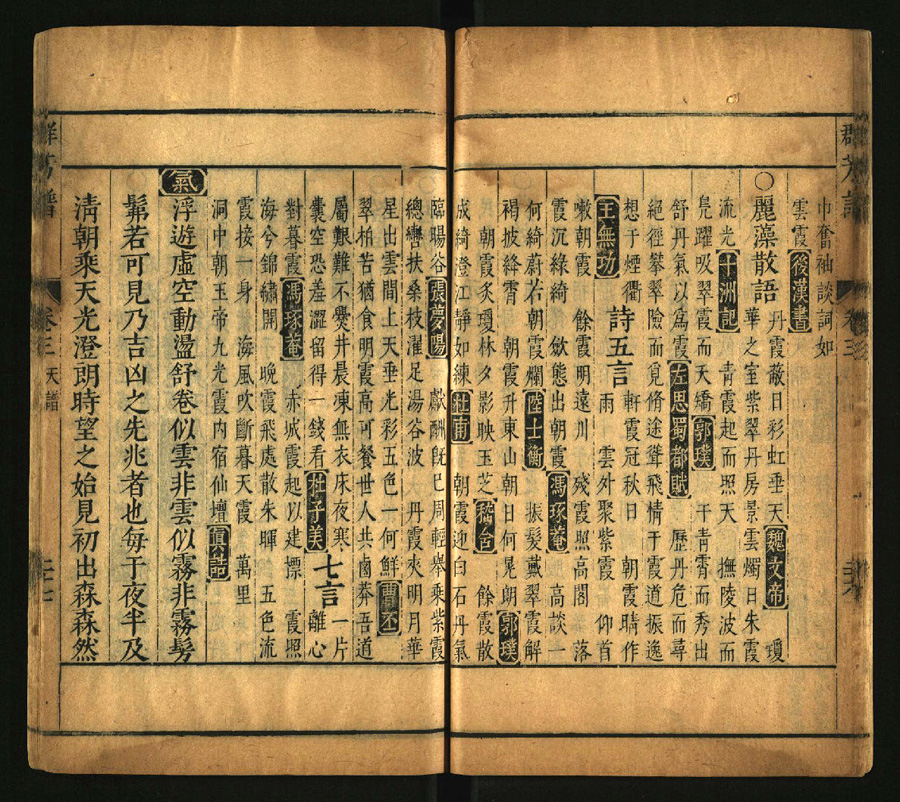 群芳譜
卷三
巾奮袖談詞如
雲霞後漢書
○麗藻散語丹霞蔽日彩虹垂天魏文帝瓊
華之室紫翠丹房景雲燭日朱霞
流光十洲記青霞起而照天撫陵波而
鳧躍吸翠霞而夭矯郭璞干青霄而秀出
舒丹氣以為霞左思蜀都賦歷丹危而尋
絕徑攀翠險而覓脩途聳飛情于霞道振逸
想于煙衢詩五言雨軒霞冠秋日朝霞晴作
王無功雲外聚紫霞仰首
嗽朝霞餘霞明遠川殘霞照高閣落
霞沉綠綺歛態出朝霞馮琢菴高談一
何綺蔚若朝霞爛陸士衡振髮戴翠霞解
褐披絳霄朝霞升東山朝日何晃朗郭璞
朝霞炙瓊林夕影映玉芝嵇含餘霞散
成綺澄江靜如練杜甫朝霞迎白石丹氣
臨暘谷張夢陽獻酬旣巳周輕舉乘紫霞
總轡扶桑枝濯足湯谷波丹霞夾明月華
星出雲間上天垂光彩五色一何鮮曹丕
翠柏苦猶食明霞高可餐世人共鹵莽吾道
屬艱難不爨井晨凍無衣床夜寒
囊空恐羞澀留得一錢看杜子美七言一片離心
對暮霞馮琢菴赤城霞起以建標霞照
海兮錦繡開晚霞飛處散朱暉五色流
霞接一身海風吹斷暮天霞萬里
洞中朝玉帝九光霞內宿仙壇真誥
氣浮遊虛空動盪舒卷似雲非雲似霧非霧髣
髴若可見乃吉凶之先兆者也每于夜半及
清朝乘天光澄朗時望之始見初出森森然
群芳譜
卷三 天譜
二十七